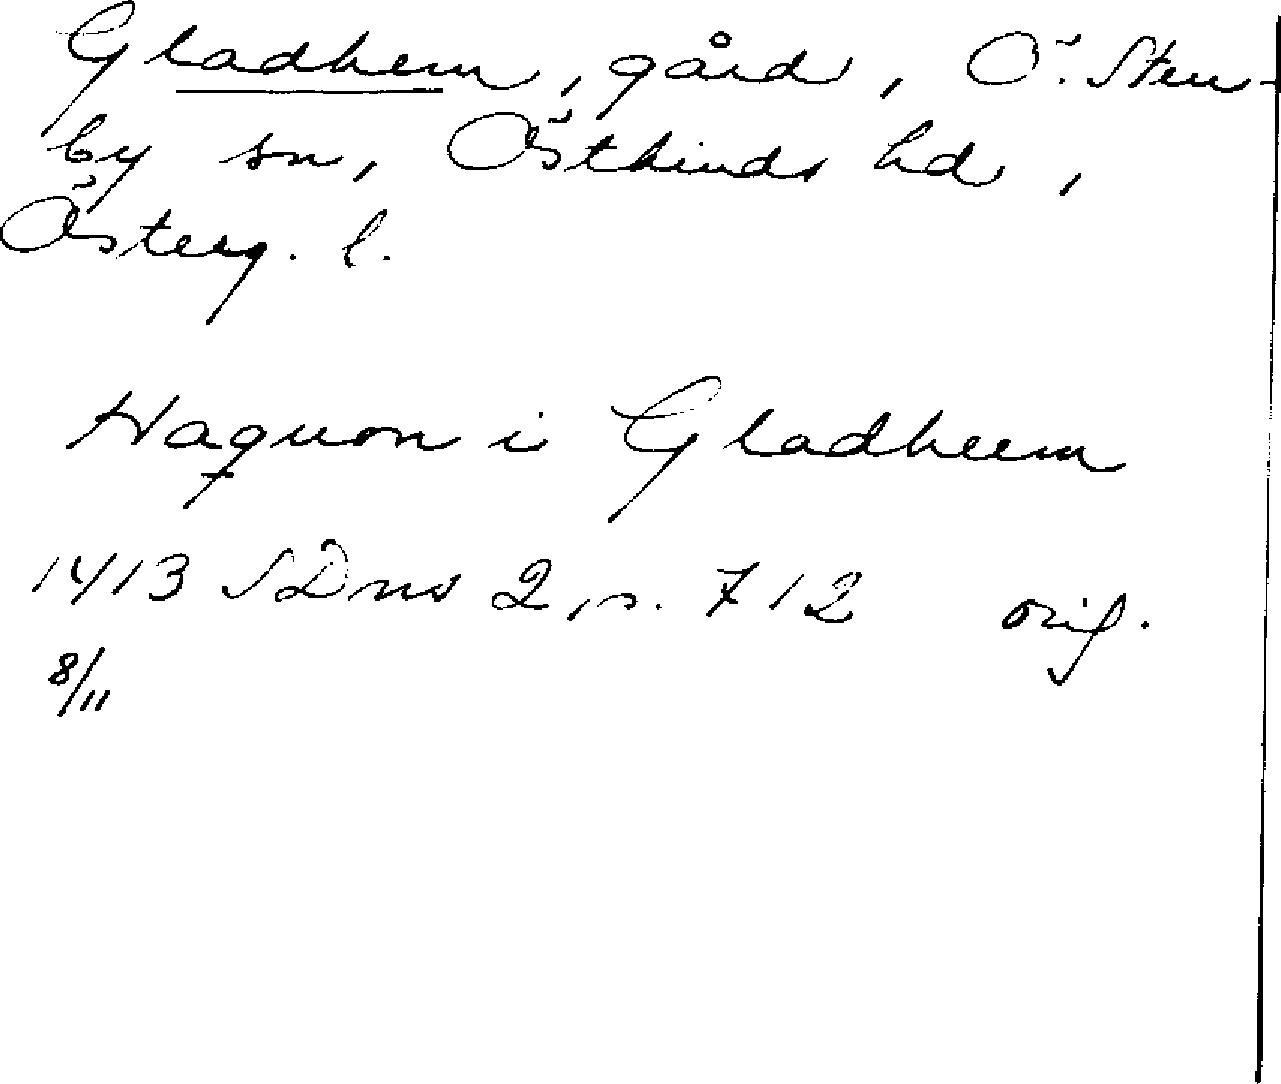 Gladhem, gård, Ö. Sten-
by sn, Östkinds hd,
Österg. l.
Haquon i Gladheem
1413 SDns 2, s. 712 orig.
8/11